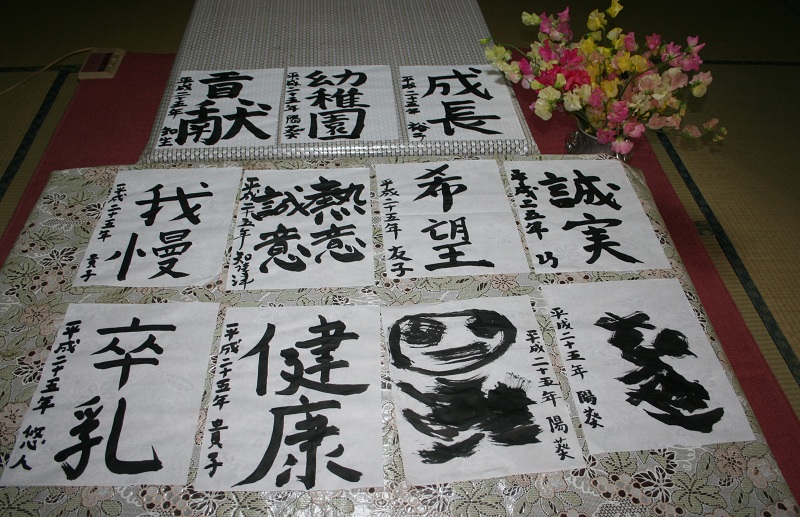 貢献
平成二五年 知生
幼稚園
平成二十五年 陽葵
成長
平成二五年
我慢
平成二十五年 貴子
熱意
誠意
平成二十五年
希望
平成二十五年 友子
誠実
平成二五年
卒乳
平成二十五年 悠人
健康
平成二十五年 貴子
平成二十五年 陽葵
平成二十五年 陽葵